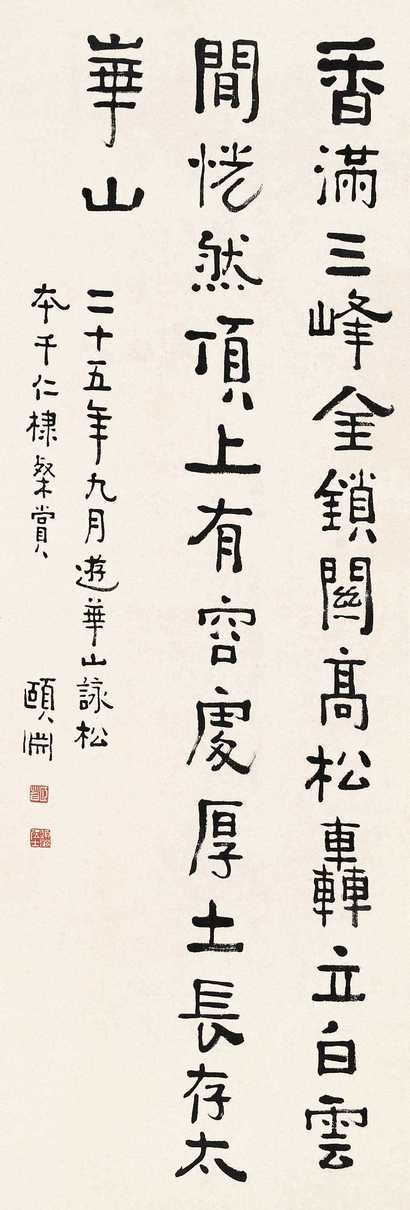 香滿三峰金鎖關高松轟立白雲
間恍然頂上有容處厚土長存太
華山
二十五年九月遊華山詠松
本千仁棣粲賞
頤淵